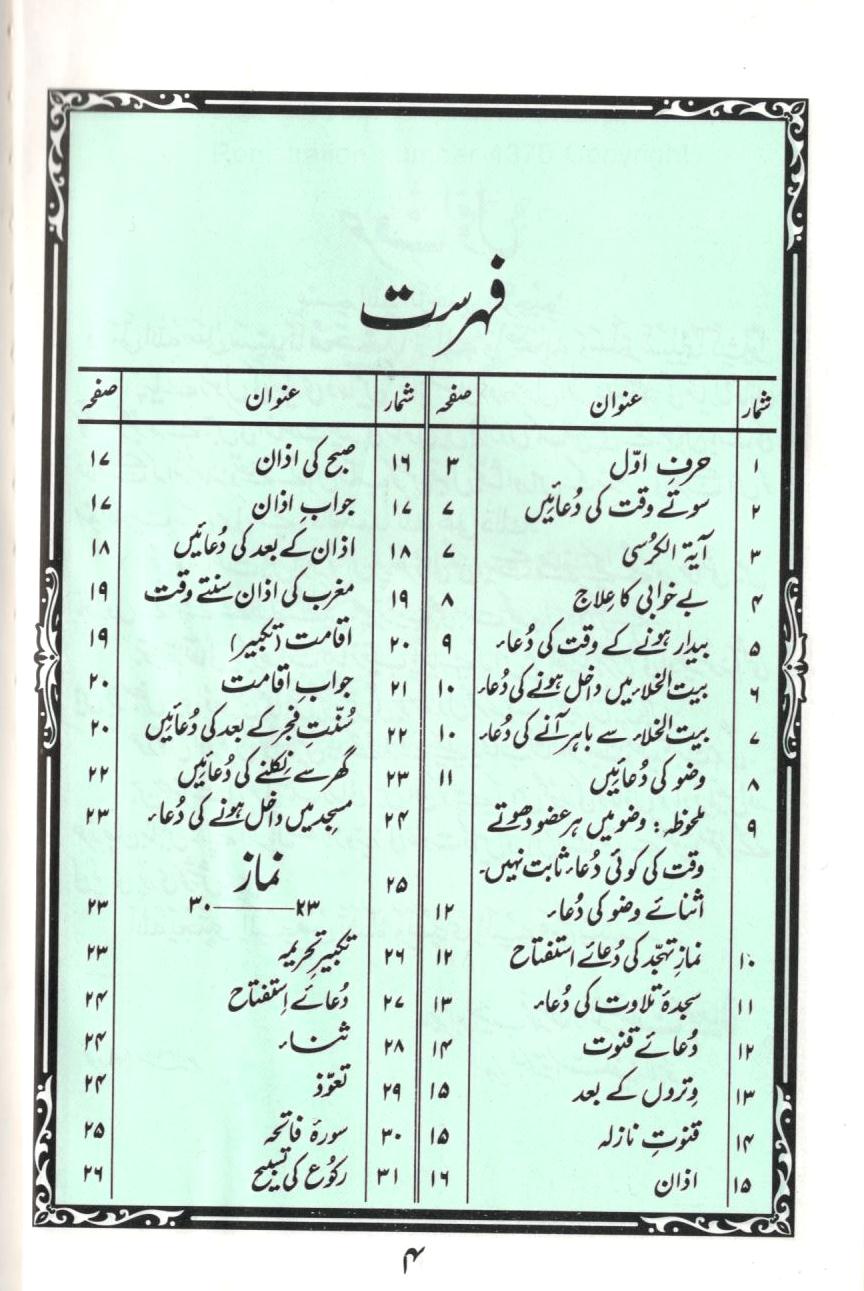 فہرست
شمار عنوان صفحہ
۱ حرفِ اوّل ۳
۲ سوتے وقت کی دُعائیں ۷
۳ آیۃ الکرُسی ۷
۴ بے خوابی کا عِلاج ۸
۵ بیدار ہونے کے وقت کی دُعاء ۹
۶ بیت الخلاء میں داخل ہونے کی دُعاء ۱۰
۷ بیت الخلاء سے باہر آنے کی دُعاء ۱۰
۸ وضو کی دُعائیں ۱۱
۹ ملحوظہ: وضو میں ہر عضو دھوتے
وقت کی کوئی دُعاء ثابت نہیں۔
اثنائے وضو کی دُعاء ۱۲
۱۰ نمازِ تہجّد کی دُعائے استفتاح ۱۲
۱۱ سجدۂ تلاوت کی دُعاء ۱۳
۱۲ دُعائے قنوت ۱۴
۱۳ وتروں کے بعد ۱۵
۱۴ قنوتِ نازلہ ۱۵
۱۵ اذان ۱۶
شمار عنوان صفحہ
۱۶ صبح کی اذان ۱۷
۱۷ جوابِ اذان ۱۷
۱۸ اذان کے بعد کی دُعائیں ۱۸
۱۹ مغرب کی اذان سنتے وقت ۱۹
۲۰ اقامت (تکبیر) ۱۹
۲۱ جوابِ اقامت ۲۰
۲۲ سُنّتِ فجر کے بعد کی دُعائیں ۲۰
۲۳ گھر سے نِکلنے کی دُعائیں ۲۲
۲۴ مسجد میں داخل ہونے کی دُعاء ۲۳
۲۵ نماز
۲۳ــــــ۳۰ ۲۳
۲۶ تکبیرِ تحریمہ ۲۳
۲۷ دُعائے اِستفتاح ۲۴
۲۸ ثناء ۲۴
۲۹ تعوّذ ۲۴
۳۰ سورۂ فاتحہ ۲۵
۳۱ رکوُع کی تسبیح ۲۶
۴